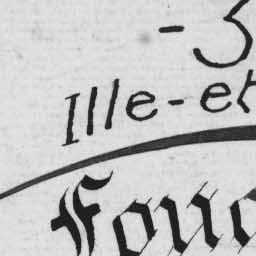 -3
Ille-et
Foug